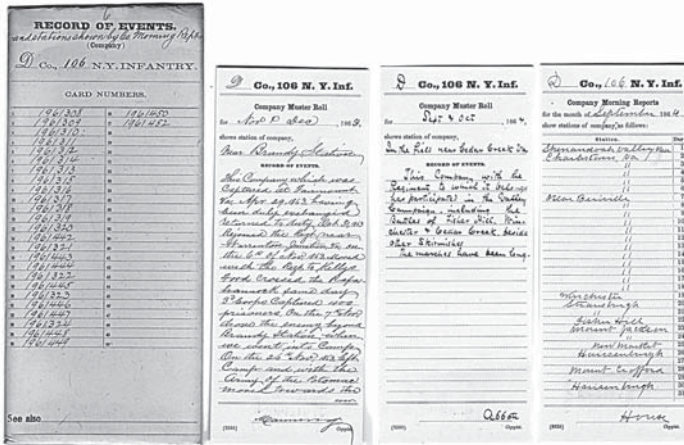 6
RECORD OF EVENTS.
and stations shown by Co. Morning Repts
(Company)
D Co., 106 N.Y. INFANTRY.
CARD NUMBERS.
1961308
1961309
1961310
1961311
1961312
1961314
1961313
1961315
1961316
1961317
1961318
1961319
1961320
1961442
1961321
1961443
1961444
1961322
1961445
1961323
1961446
1961447
1961324
1961448
1961449
1961450
1961452
See also
D Co., 106 N. Y. Inf.
Company Muster Roll
for Nov & Dec, 1863.
shows station of company,
Near Brandy Station
RECORD OF EVENTS.
This Company which was
Captured at Fairmount
Va. Apr. 29, 1863 having
been duly exchanged
returned to duty Oct. 31, 1863
Rejoined the Regt. near
Warrenton Junction Va on
the 6th of Nov 1863 moved
with the Regt. to Kellys
Ford Crossed the Rapa-
hannock same day
3d Corps Captured 400
prisoners. On the 7th &
drove the enemy beyond
Brandy Station when
we went into Camp.
On the 26th Nov. 1863 left
Camp and with the
Army of the Potomac
moved towards the
D Co., 106 N. Y. Inf.
Company Muster Roll
for Sept & Oct, 1864.
shows station of company,
In the Field near Cedar Creek Va
RECORD OF EVENTS.
This Company with the
Regiment to which it belongs
has participated in the Valley
Campaign, including the
Battles of Fisher Hill, Win-
chester & Cedar Creek, beside
other Skirmishes
The marches have been long.
Abbott
Copyist.
D Co., 106 N. Y. Inf.
Company Morning Reports
for the month of September 1864
show stations of company as follows:
Station.
Shenandoah Valley Va
Charlestown, Va
"
"
"
Near Berryville
"
"
"
"
"
"
"
"
"
"
"
Winchester
Strausburgh
"
Fisher Hill
Mount Jackson
"
New Market
Harrisonburgh
"
Mount Crofford
"
Harrisonburgh
House
Copyist.